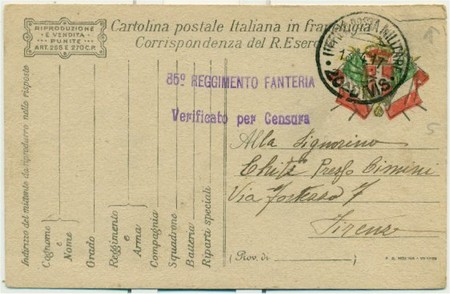 RIPRODUZIONE
E VENDITA
PUNITE
ART. 255 E 270 C.P.
Cartolina postale Italiana in franchigia
Corrispondenza del R. Esercito
POSTA MILITARE
17
DIVIS
85º REGGIMENTO FANTERIA
Verificato per Censura
Indirizzo del mittente da riprodurre nelle risposte
Cognome e Nome
Grado
Reggimento e Arma
Compagnia
Squadrone
Batteria
Riparti speciali
Alla Signorina
Cimini
Via 7
Firenze
(Prov. di )